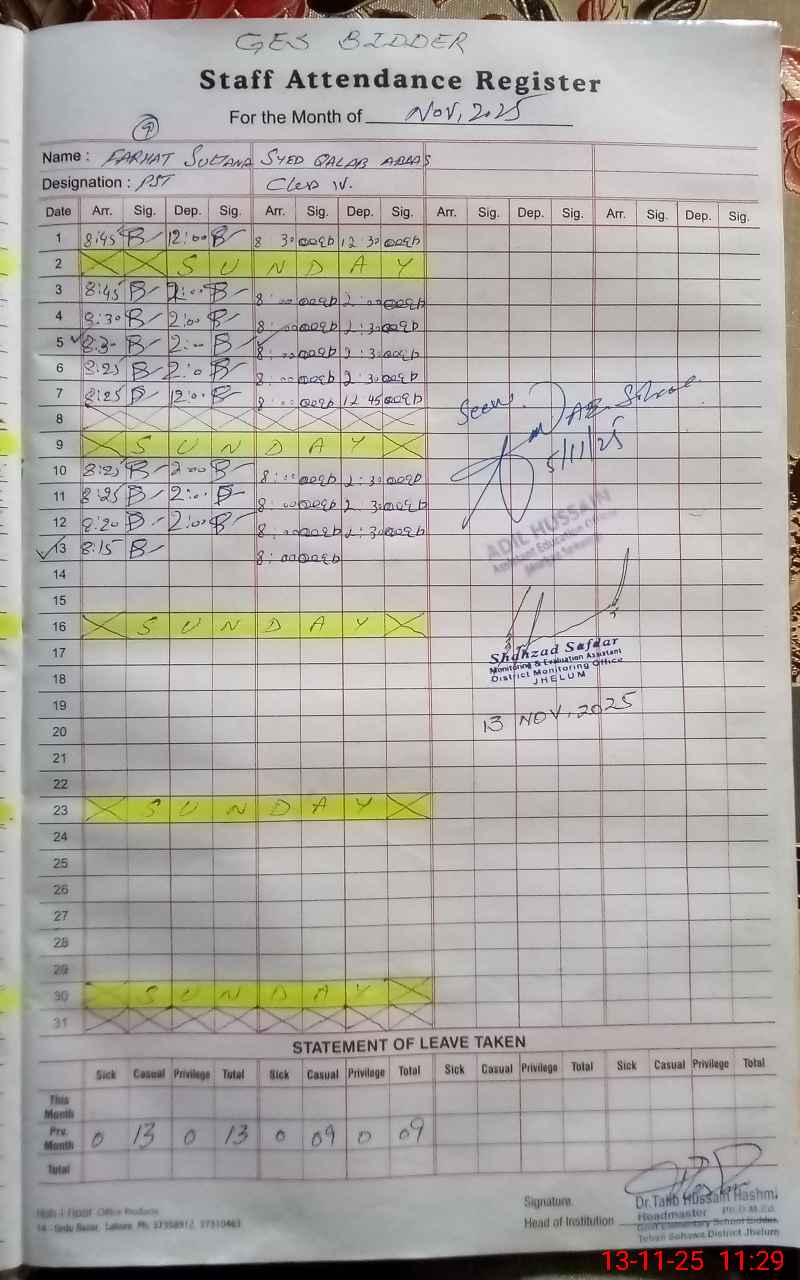 GES BIDDER
Staff Attendance Register
For the Month of Nov, 2025
9
Name : FARHAT SULTANA SYED QALAB ABBAS
Designation : PST Class IV.
Date Arr. Sig. Dep. Sig. Arr. Sig. Dep. Sig. Arr. Sig. Dep. Sig. Arr. Sig. Dep. Sig.
1 8:45 12:00 8 30 12:30
2 S U N D A Y
3 8:45 2:00 8:00 2:00
4 8:30 2:00 8:00 2:30
5 8:30 2:00 8:00 2:30
6 8:25 2:0 8:00 2:30
7 8:25 12:00 8:00 12 45
8
9 S U N D A Y
10 8:25 2:00 8:00 2:30
11 8:25 2:00 8:00 2 30
12 8:20 2:00 8:00 2:30
13 8:15 8:00
Seen.
5/11/25
ADIL HUSSAIN
Assistant Education Officer
14
15
16 S U N D A Y
17
Shahzad Safdar
Monitoring & Evaluation Assistant
District Monitoring Office
JHELUM
18
19
13 NOV, 2025
20
21
22
23 S U N D A Y
24
25
26
27
28
29
30 S U N D A Y
31
STATEMENT OF LEAVE TAKEN
Sick Casual Privilege Total Sick Casual Privilege Total Sick Casual Privilege Total Sick Casual Privilege Total
This Month
Pre. Month 0 13 0 13 0 09 0 09
Total
Office Products
14 - Urdu Bazar, Lahore. Ph: 37358912, 37310463
Signature.
Head of Institution
Dr. Talib Hussain Hashmi
Headmaster Ph.D M.Ed.
Govt Elementary School Bidder
Tehsil Sohawa District Jhelum
13-11-25 11:29